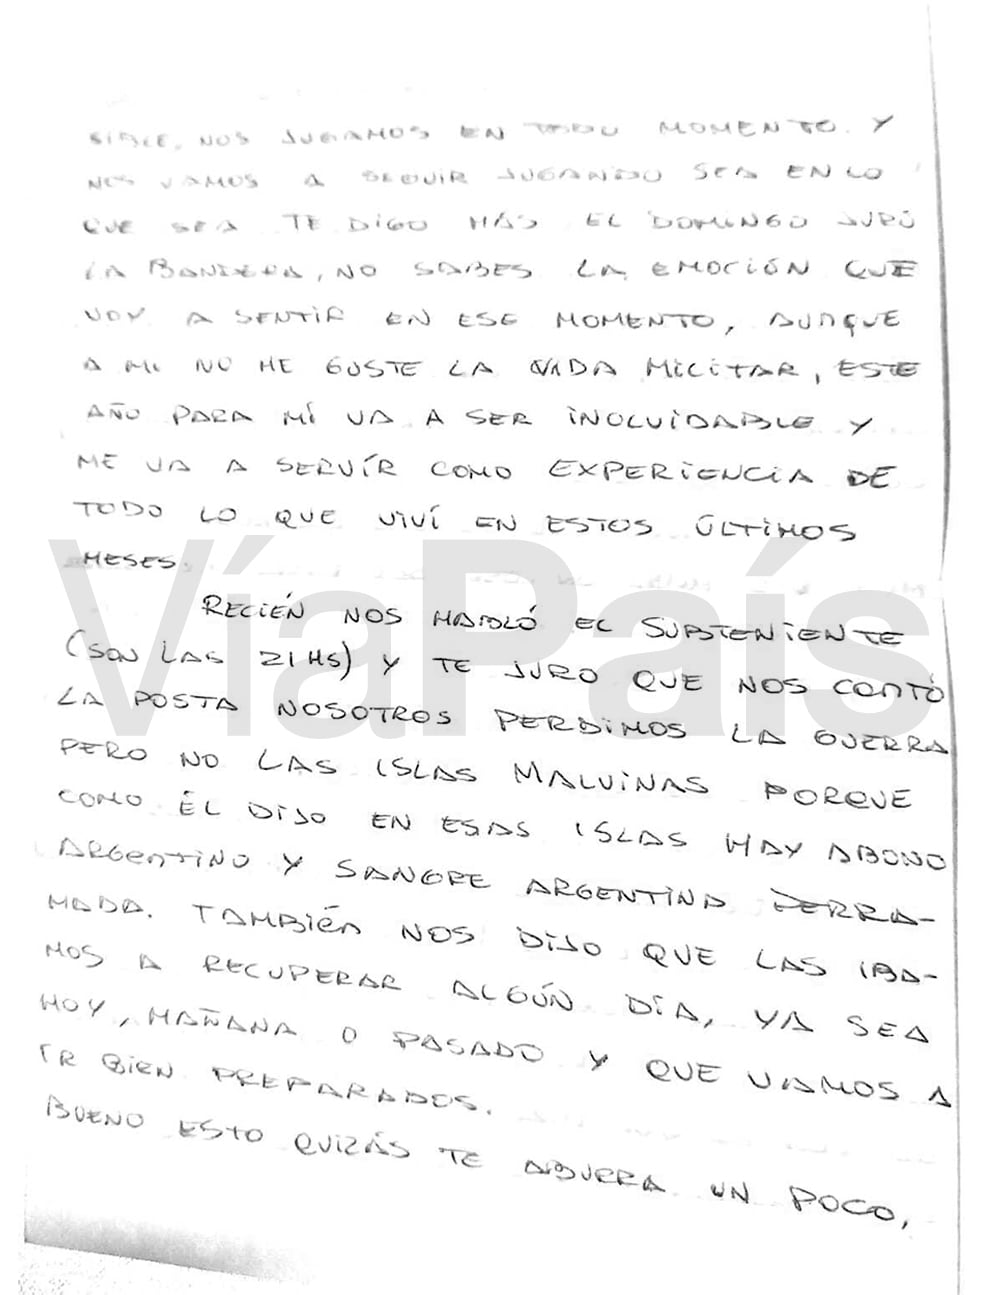 SIBLE, NOS JUGAMOS EN TODO MOMENTO. Y
NOS VAMOS A SEGUIR JUGANDO SEA EN LO
QUE SEA TE DIGO MÁS EL DOMINGO JURO
LA BANDERA, NO SABES LA EMOCIÓN QUE
VOY A SENTIR EN ESE MOMENTO, AUNQUE
A MI NO ME GUSTE LA VIDA MILITAR, ESTE
AÑO PARA MÍ VA A SER INOLVIDABLE Y
ME VA A SERVÍR COMO EXPERIENCIA DE
TODO LO QUE VIVÍ EN ESTOS ÚLTIMOS
MESES.
RECIÉN NOS HABLÓ EL SUBTENIENTE
(SON LAS 21 HS) Y TE JURO QUE NOS CONTÓ
LA POSTA NOSOTROS PERDIMOS LA GUERRA
PERO NO LAS ISLAS MALVINAS PORQUE
COMO ÉL DIJO EN ESAS ISLAS HAY ABONO
ARGENTINO Y SANGRE ARGENTINA DERRA-
MADA. TAMBIÉN NOS DIJO QUE LAS IBA-
MOS A RECUPERAR ALGÚN DÍA, YA SEA
HOY, MAÑANA O PASADO Y QUE VAMOS A
IR BIEN PREPARADOS.
BUENO ESTO QUIZÁS TE ABURRA UN POCO,
VíaPaís